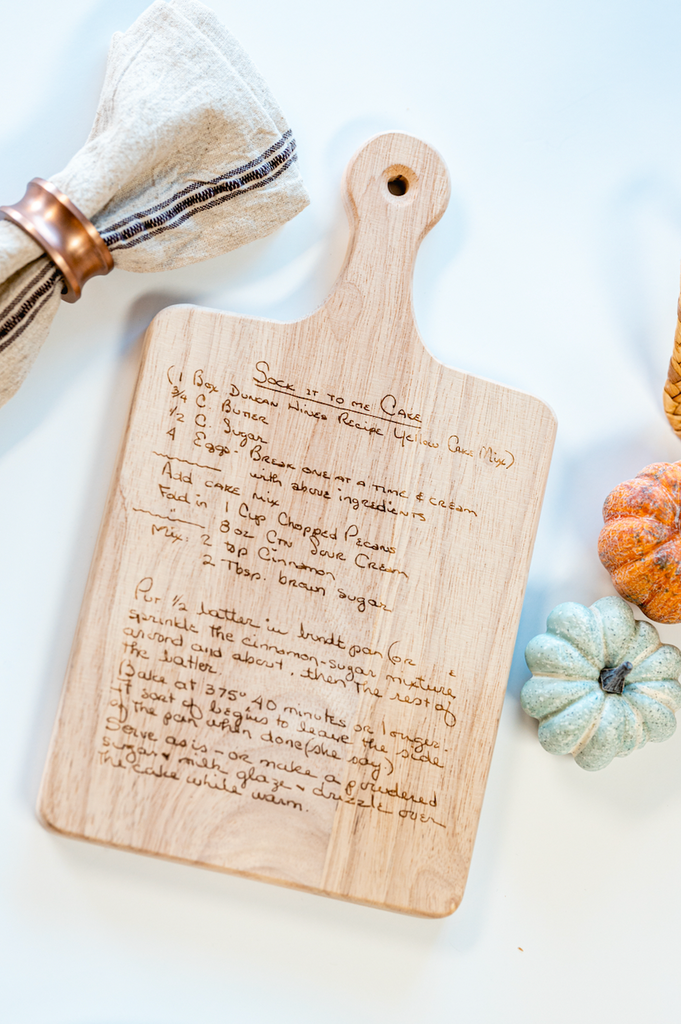 Sock it to me Cake
(1 Box Duncan Hines Recipe Yellow Cake Mix)
3/4 C. Butter
1/2 C. Sugar
4 Eggs - Break one at a time & cream
with above ingredients
Add cake mix
Fold in 1 Cup Chopped Pecans
" 8 oz Ctn Sour Cream
Mix: 2 tsp Cinnamon
2 Tbsp. brown sugar
Put 1/2 batter in bundt pan (or
sprinkle the cinnamon-sugar mixture
around and about, then the rest of
the batter.
Bake at 375° 40 minutes or longer.
It sort of begins to leave the side
of the pan when done (she say)
Serve as is - or make a powdered
sugar & milk glaze & drizzle over
the cake while warm.